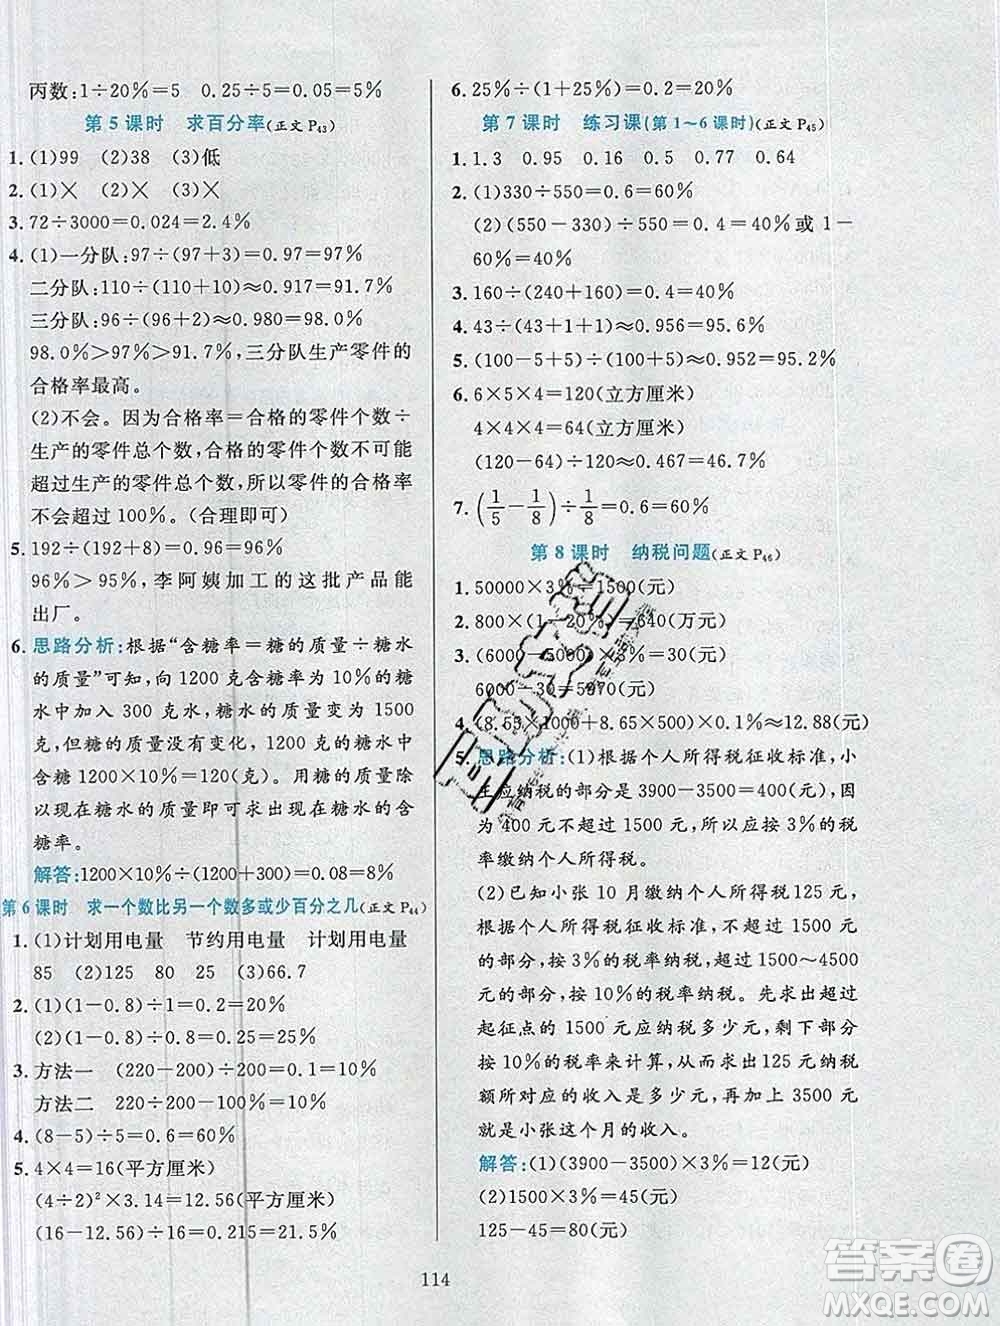 丙数:1÷20%=5　0.25÷5=0.05=5%
第5课时　求百分率(正文P43)
1. (1)99　(2)38　(3)低
2. (1)×　(2)×　(3)×
3. 72÷3000=0.024=2.4%
4. (1)一分队:97÷(97+3)=0.97=97%
二分队:110÷(110+10)≈0.917=91.7%
三分队:96÷(96+2)≈0.980=98.0%
98.0%>97%>91.7%,三分队生产零件的
合格率最高。
(2)不会。因为合格率=合格的零件个数÷
生产的零件总个数,合格的零件个数不可能
超过生产的零件总个数,所以零件的合格率
不会超过100%。(合理即可)
5. 192÷(192+8)=0.96=96%
96%>95%,李阿姨加工的这批产品能
出厂。
6. 思路分析:根据“含糖率=糖的质量÷糖水
的质量”可知,向1200克含糖率为10%的糖
水中加入300克水,糖水的质量变为1500
克,但糖的质量没有变化,1200克糖水中
含糖1200×10%=120(克)。用糖的质量除
以现在糖水的质量即可求出现在糖水的含
糖率。
解答:1200×10%÷(1200+300)=0.08=8%
第6课时　求一个数比另一个数多或少百分之几(正文P44)
1. (1)计划用电量　节约用电量　计划用电量
85　(2)125　80　25　(3)66.7
2. (1)(1-0.8)÷1=0.2=20%
(2)(1-0.8)÷0.8=0.25=25%
3. 方法一　(220-200)÷200=0.1=10%
方法二　220÷200-100%=10%
4. (8-5)÷5=0.6=60%
5. 4×4=16(平方厘米)
(4÷2)²×3.14=12.56(平方厘米)
(16-12.56)÷16=0.215=21.5%
6. 25%÷(1+25%)=0.2=20%
第7课时　练习课(第1~6课时)(正文P45)
1. 1.3　0.95　0.16　0.5　0.77　0.64
2. (1)330÷550=0.6=60%
(2)(550-330)÷550=0.4=40%或1-
60%=40%
3. 160÷(240+160)=0.4=40%
4. 43÷(43+1+1)≈0.956=95.6%
5. (100-5+5)÷(100+5)≈0.952=95.2%
6. 6×5×4=120(立方厘米)
4×4×4=64(立方厘米)
(120-64)÷120≈0.467=46.7%
7. (1/5-1/8)÷1/8=0.6=60%
第8课时　纳税问题(正文P46)
1. 50000×3%=1500(元)
2. 800×(1-20%)=640(万元)
3. (6000-5000)×3%=30(元)
6000-30=5970(元)
4. (8.65×1000+8.65×500)×0.1%≈12.88(元)
5. 思路分析:(1)根据个人所得税征收标准,小
王应纳税的部分是3900-3500=400(元),因
为400元不超过1500元,所以应按3%的税
率缴纳个人所得税。
(2)已知小张10月缴纳个人所得税125元,
根据个人所得税征收标准,超过起征点1500
元的部分,按3%的税率纳税,超过1500~4500
元的部分,按10%的税率纳税。先求出超过
起征点的1500元应纳税多少元,剩下部分
按10%的税率来计算,从而求出125元纳税
额所对应的收入是多少元,再加上3500元
就是小张这个月的收入。
解答:(1)(3900-3500)×3%=12(元)
(2)1500×3%=45(元)
125-45=80(元)
114
答案圈
MXQE.COM